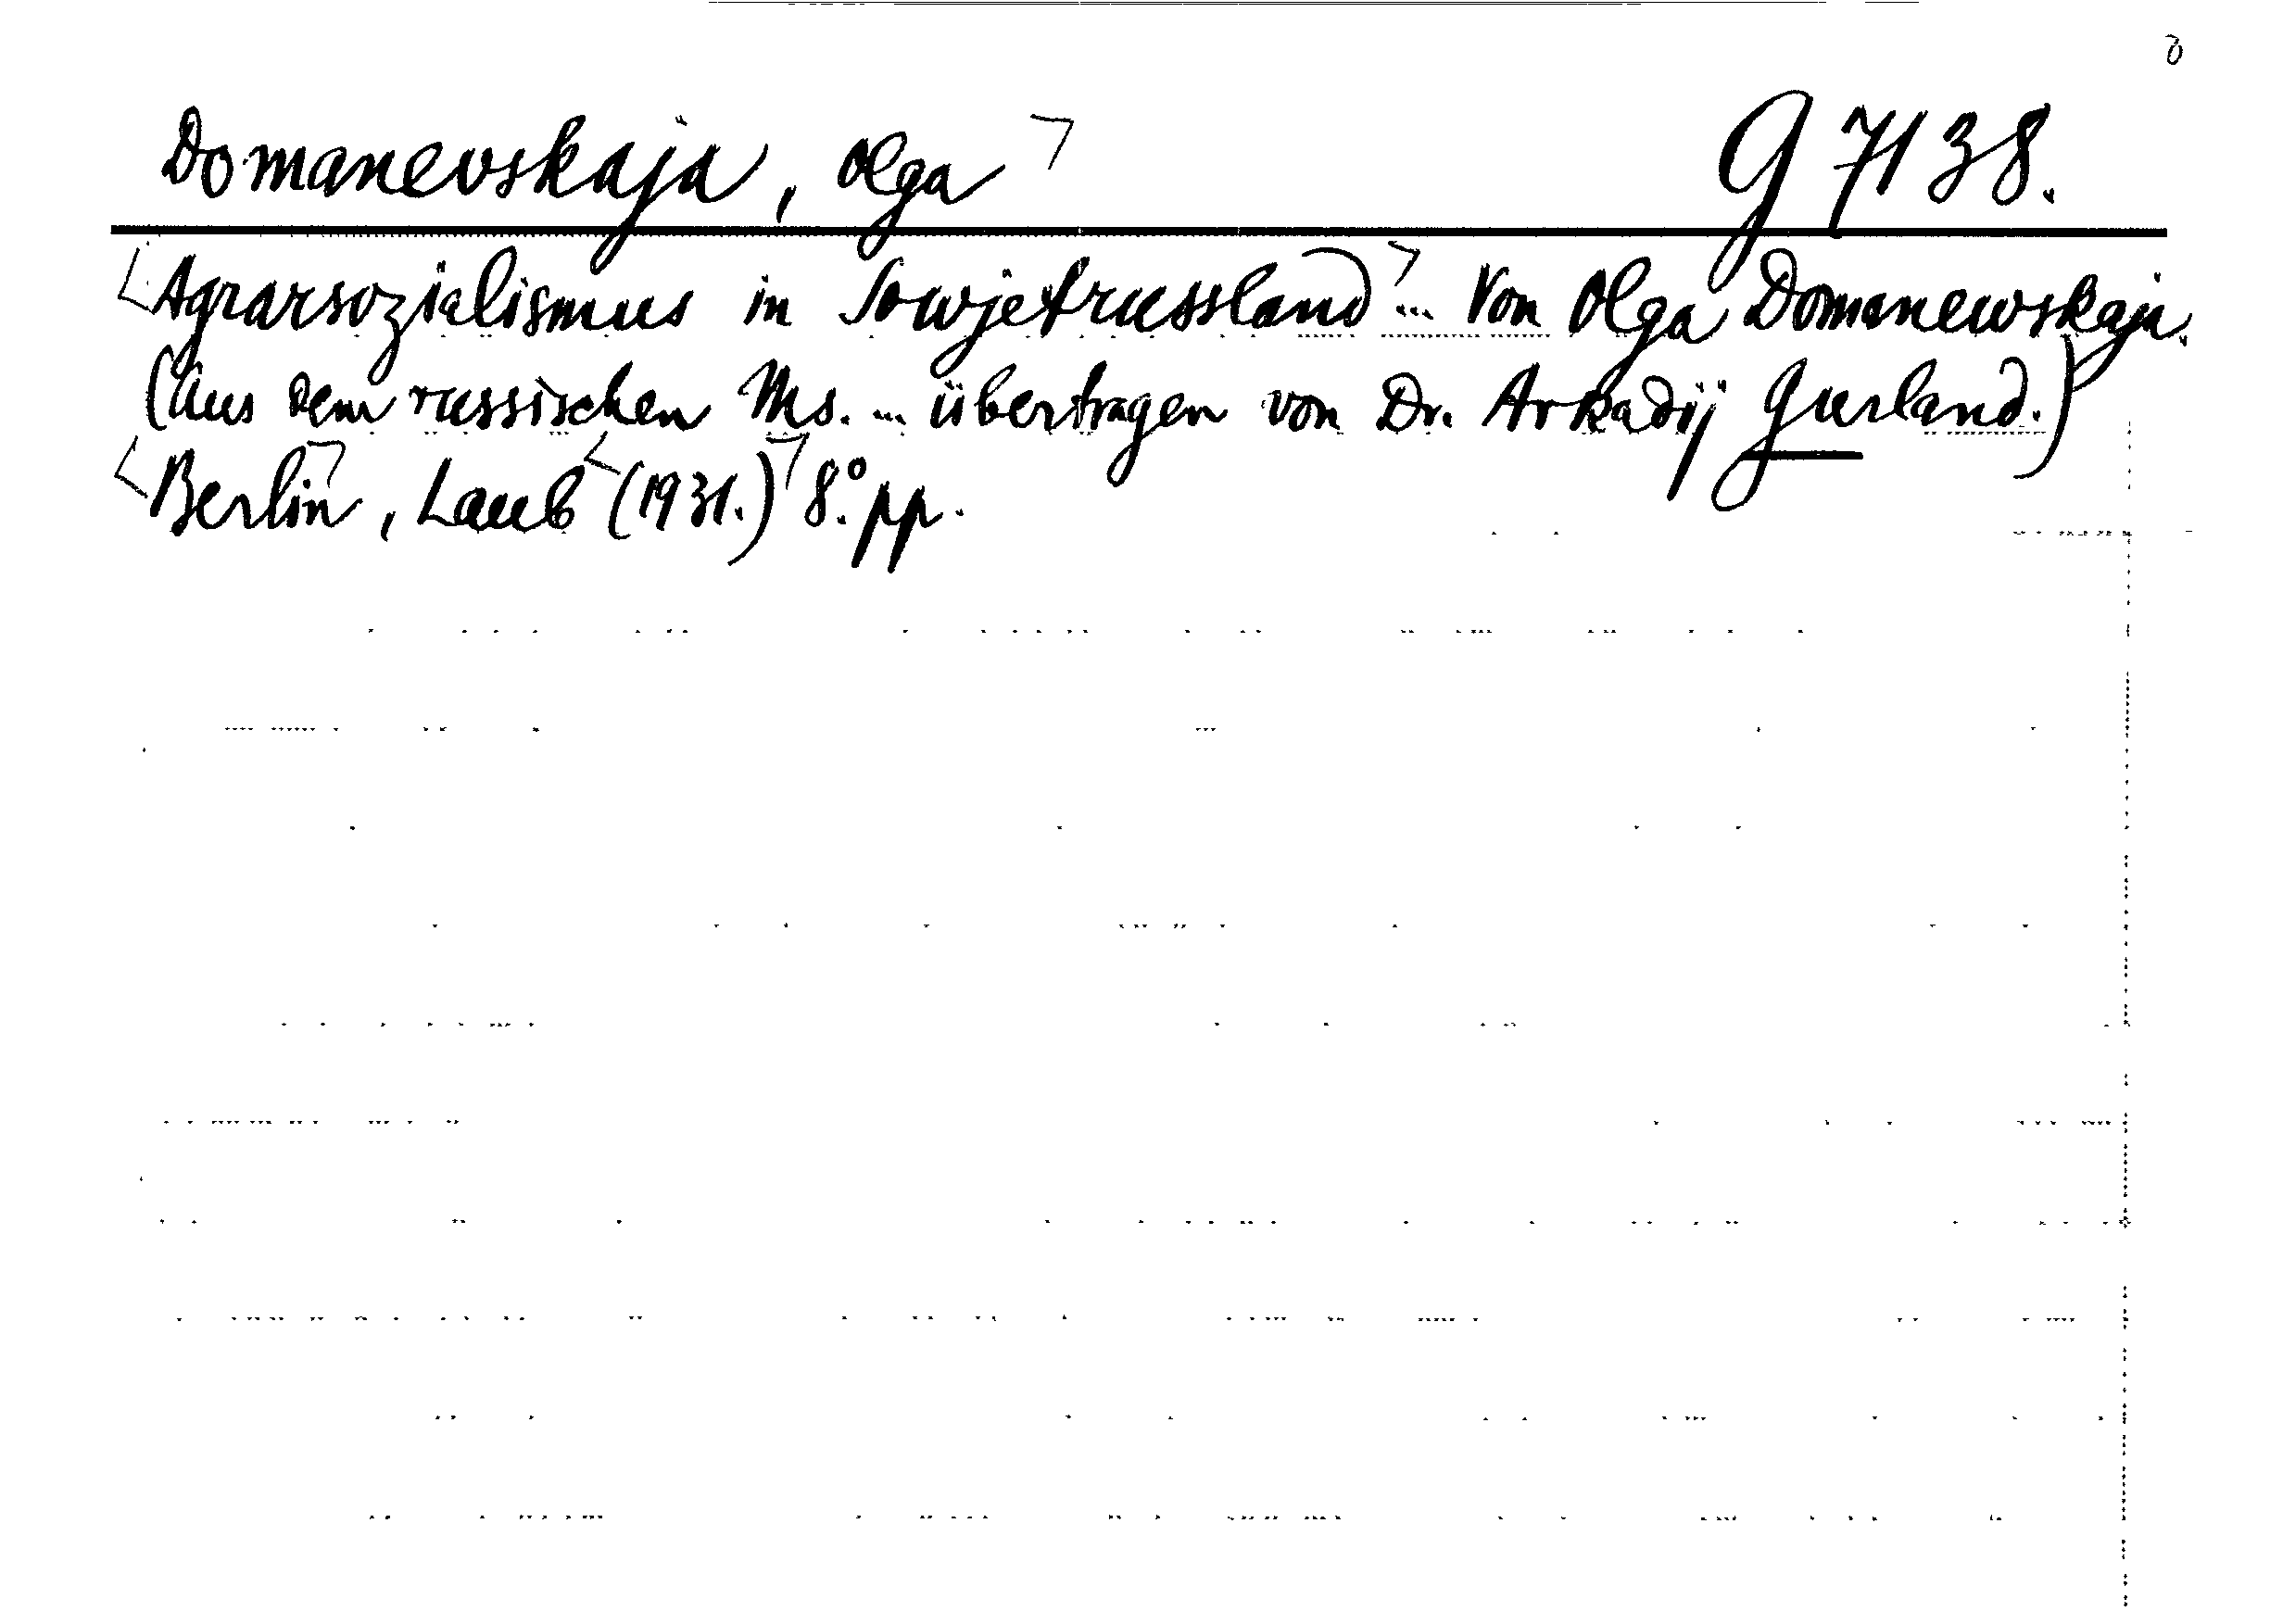 Domanevskaja, Olga G 7138.
Agrarsozialismus in Sowjetrussland ... Von Olga Domanewskaja.
(Aus dem russischen Ms. ... übertragen von Dr. Arkadij Gurland.)
Berlin, Laub (1931.) 8.° pp.